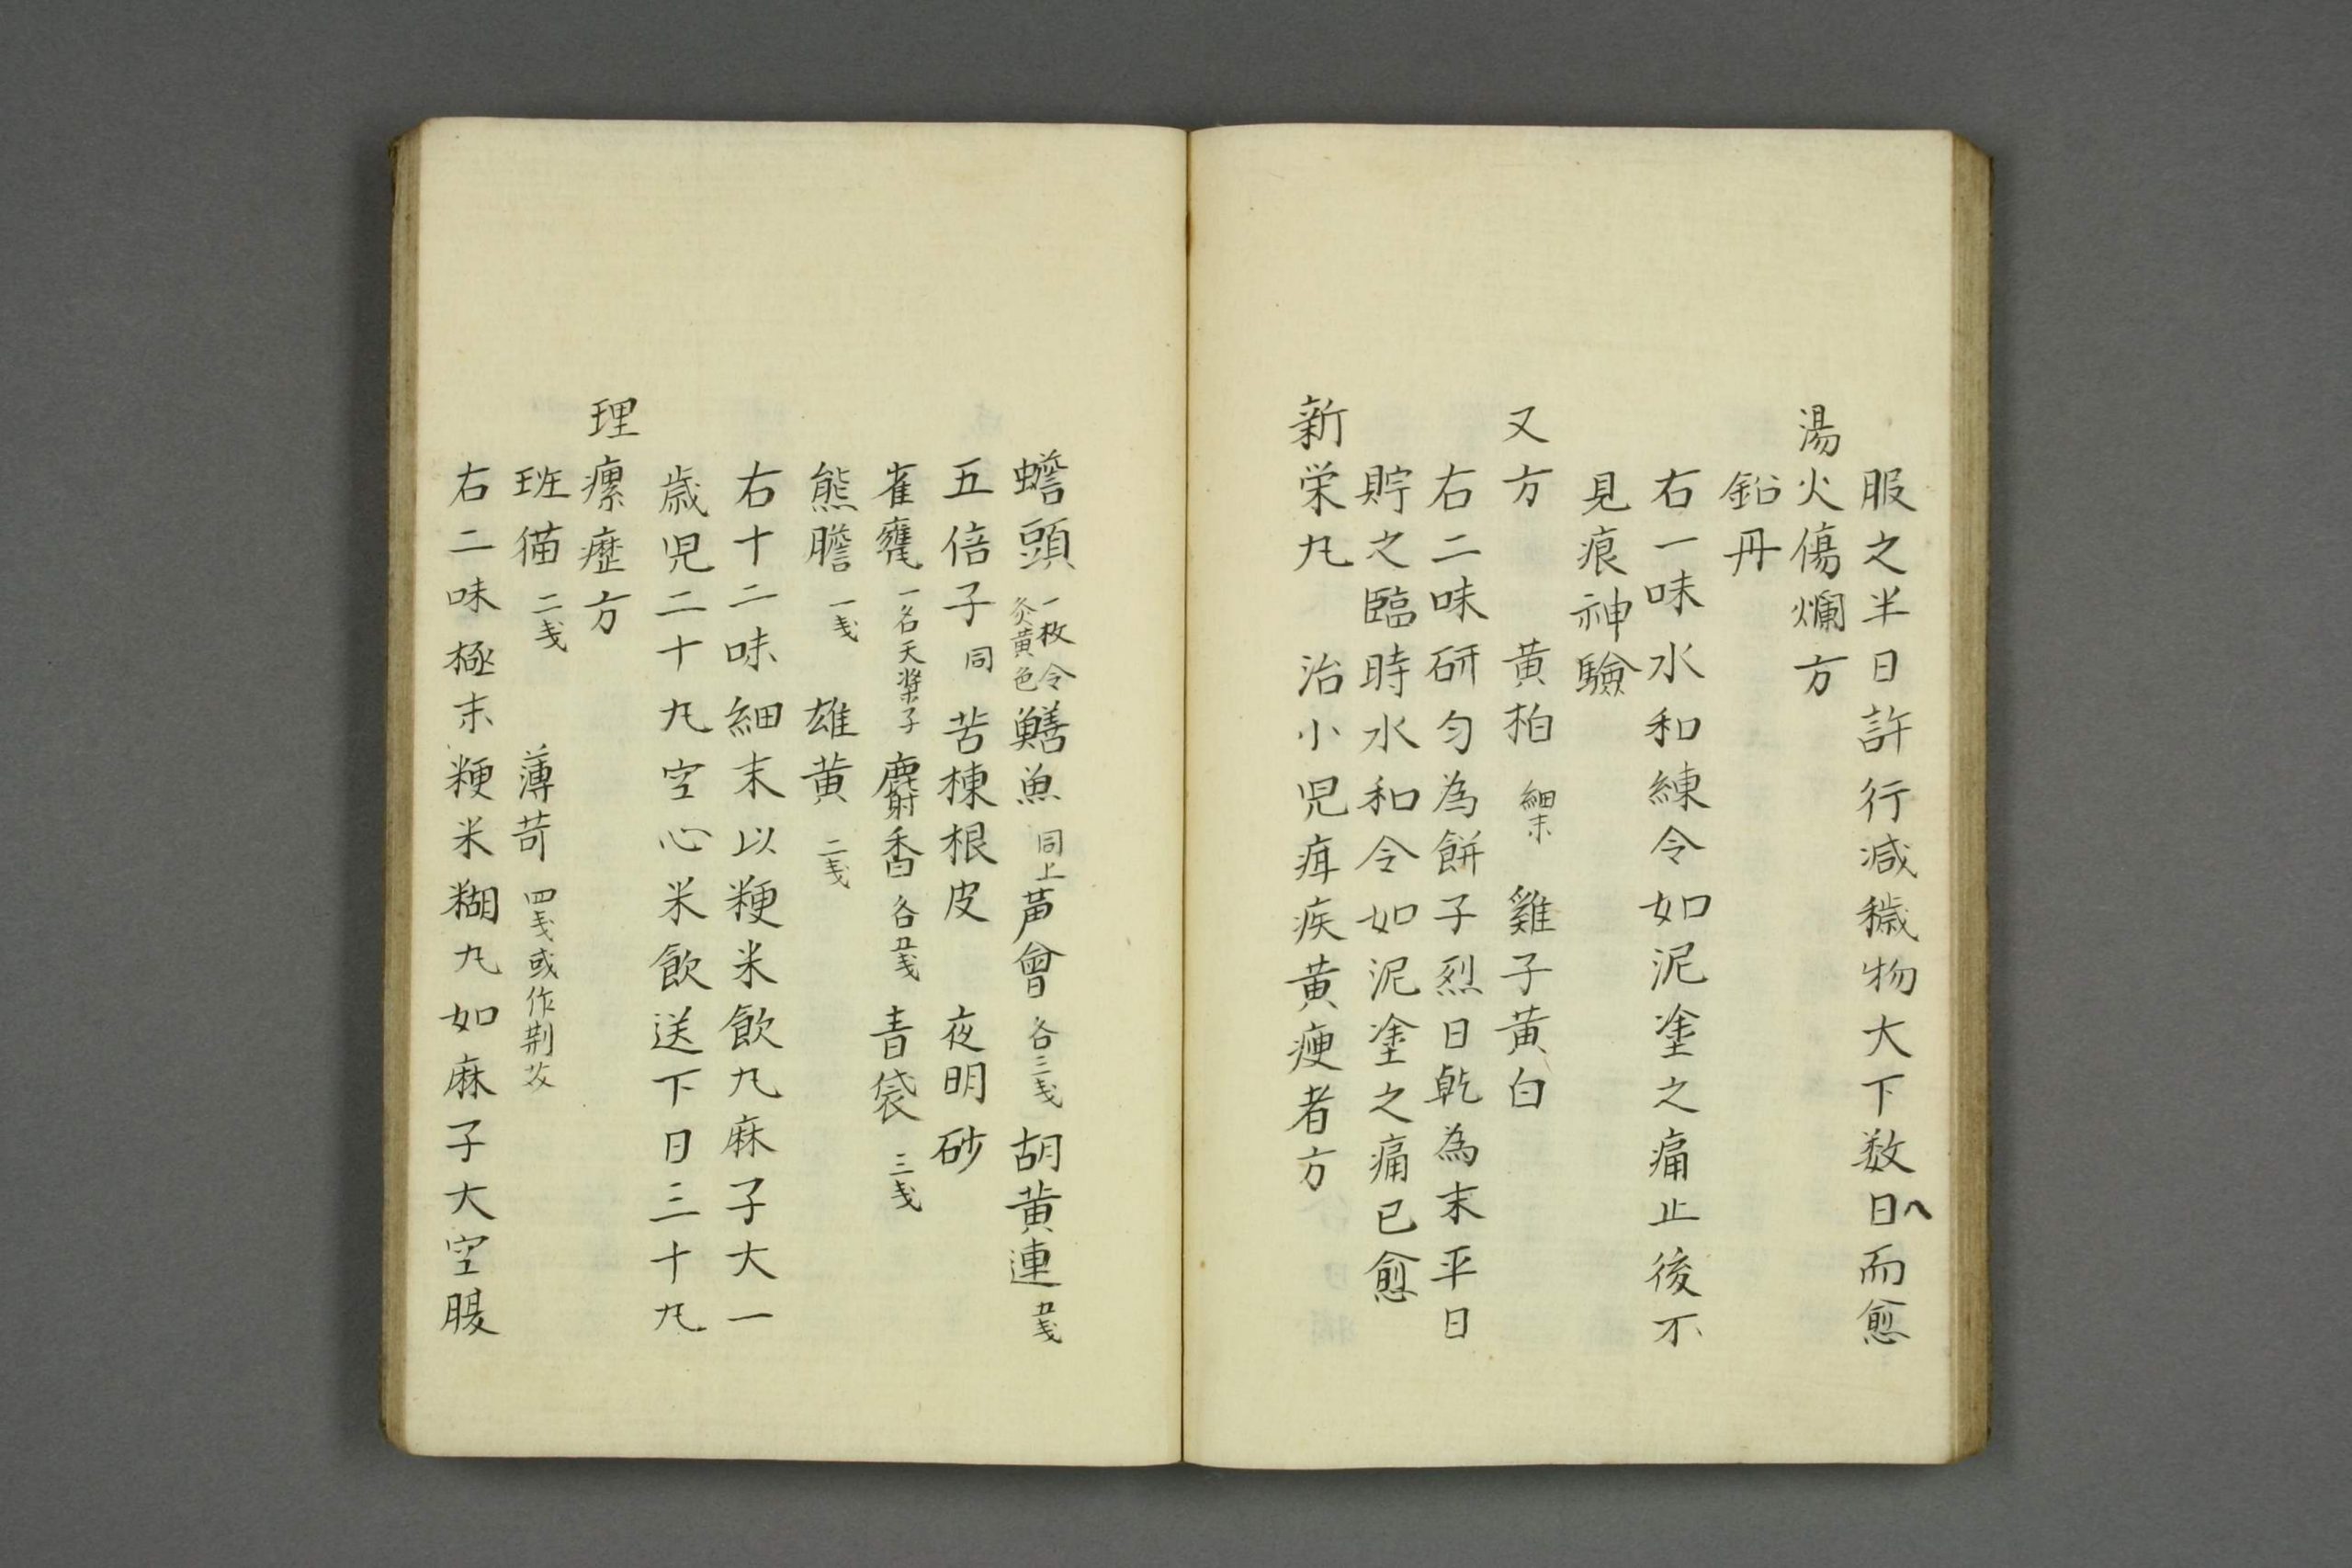 服之半日許行減穢物大下数日ヘ而愈
湯火傷爛方
鉛丹
右一味水和練令如泥塗之痛止後不
見痕神驗
又方　黄柏 細末　雞子黄白
右二味研匀為餅子烈日乾為末平日
貯之臨時水和令如泥塗之痛已愈
新栄丸　治小児疳疾黄瘦者方
蟾頭 一枚令炙黄色 鱔魚 同上 芦會 各三戔 胡黄連 五戔
五倍子 同 苦棟根皮　夜明砂
雀甕 一名天漿子 麝香 各五戔 青袋 三戔
熊膽 一戔　雄黄 二戔
右十二味細末以粳米飲丸麻子大一
歳児二十丸空心米飲送下日三十丸
理瘰癧方
班猫 二戔　薄苛 四戔或作荆芥
右二味極末粳米糊丸如麻子大空腹